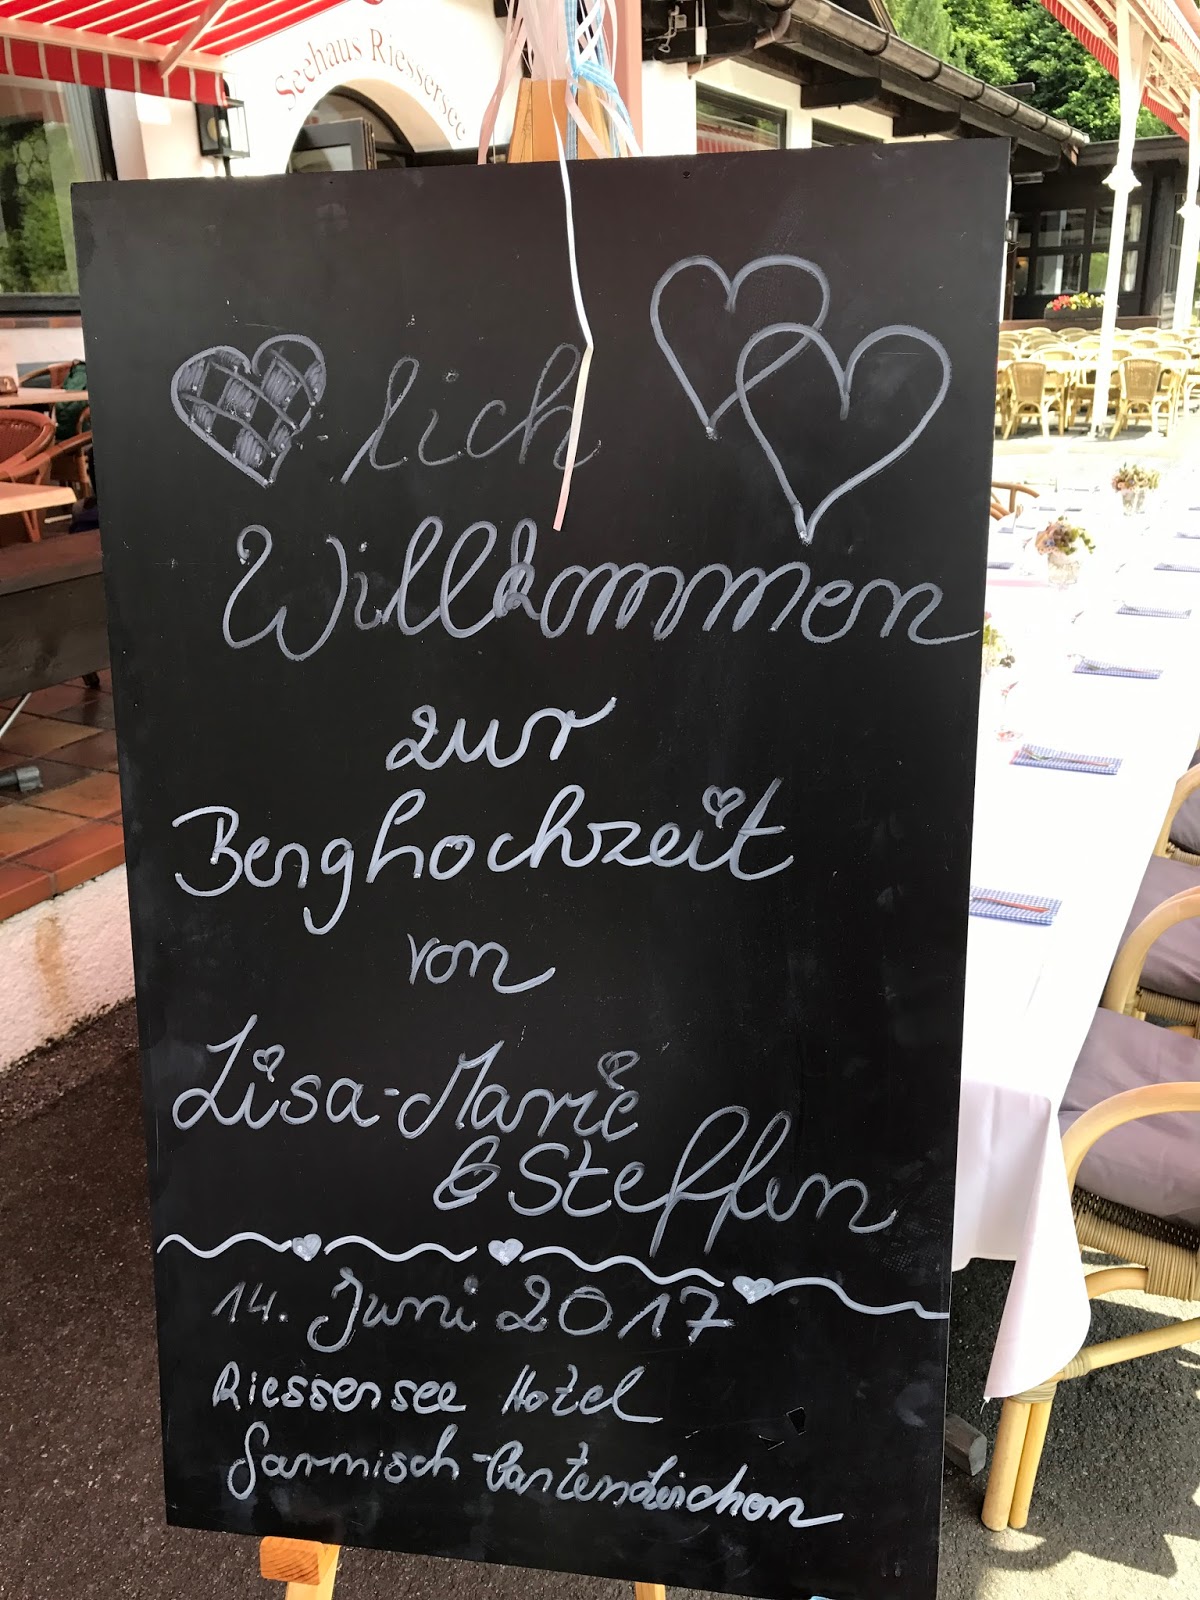 Seehaus Riessersee
lich
Willkommen
zur
Berghochzeit
von
Lisa-Marie
& Steffen
14. Juni 2017
Riessersee Hotel
Garmisch-Partenkirchen